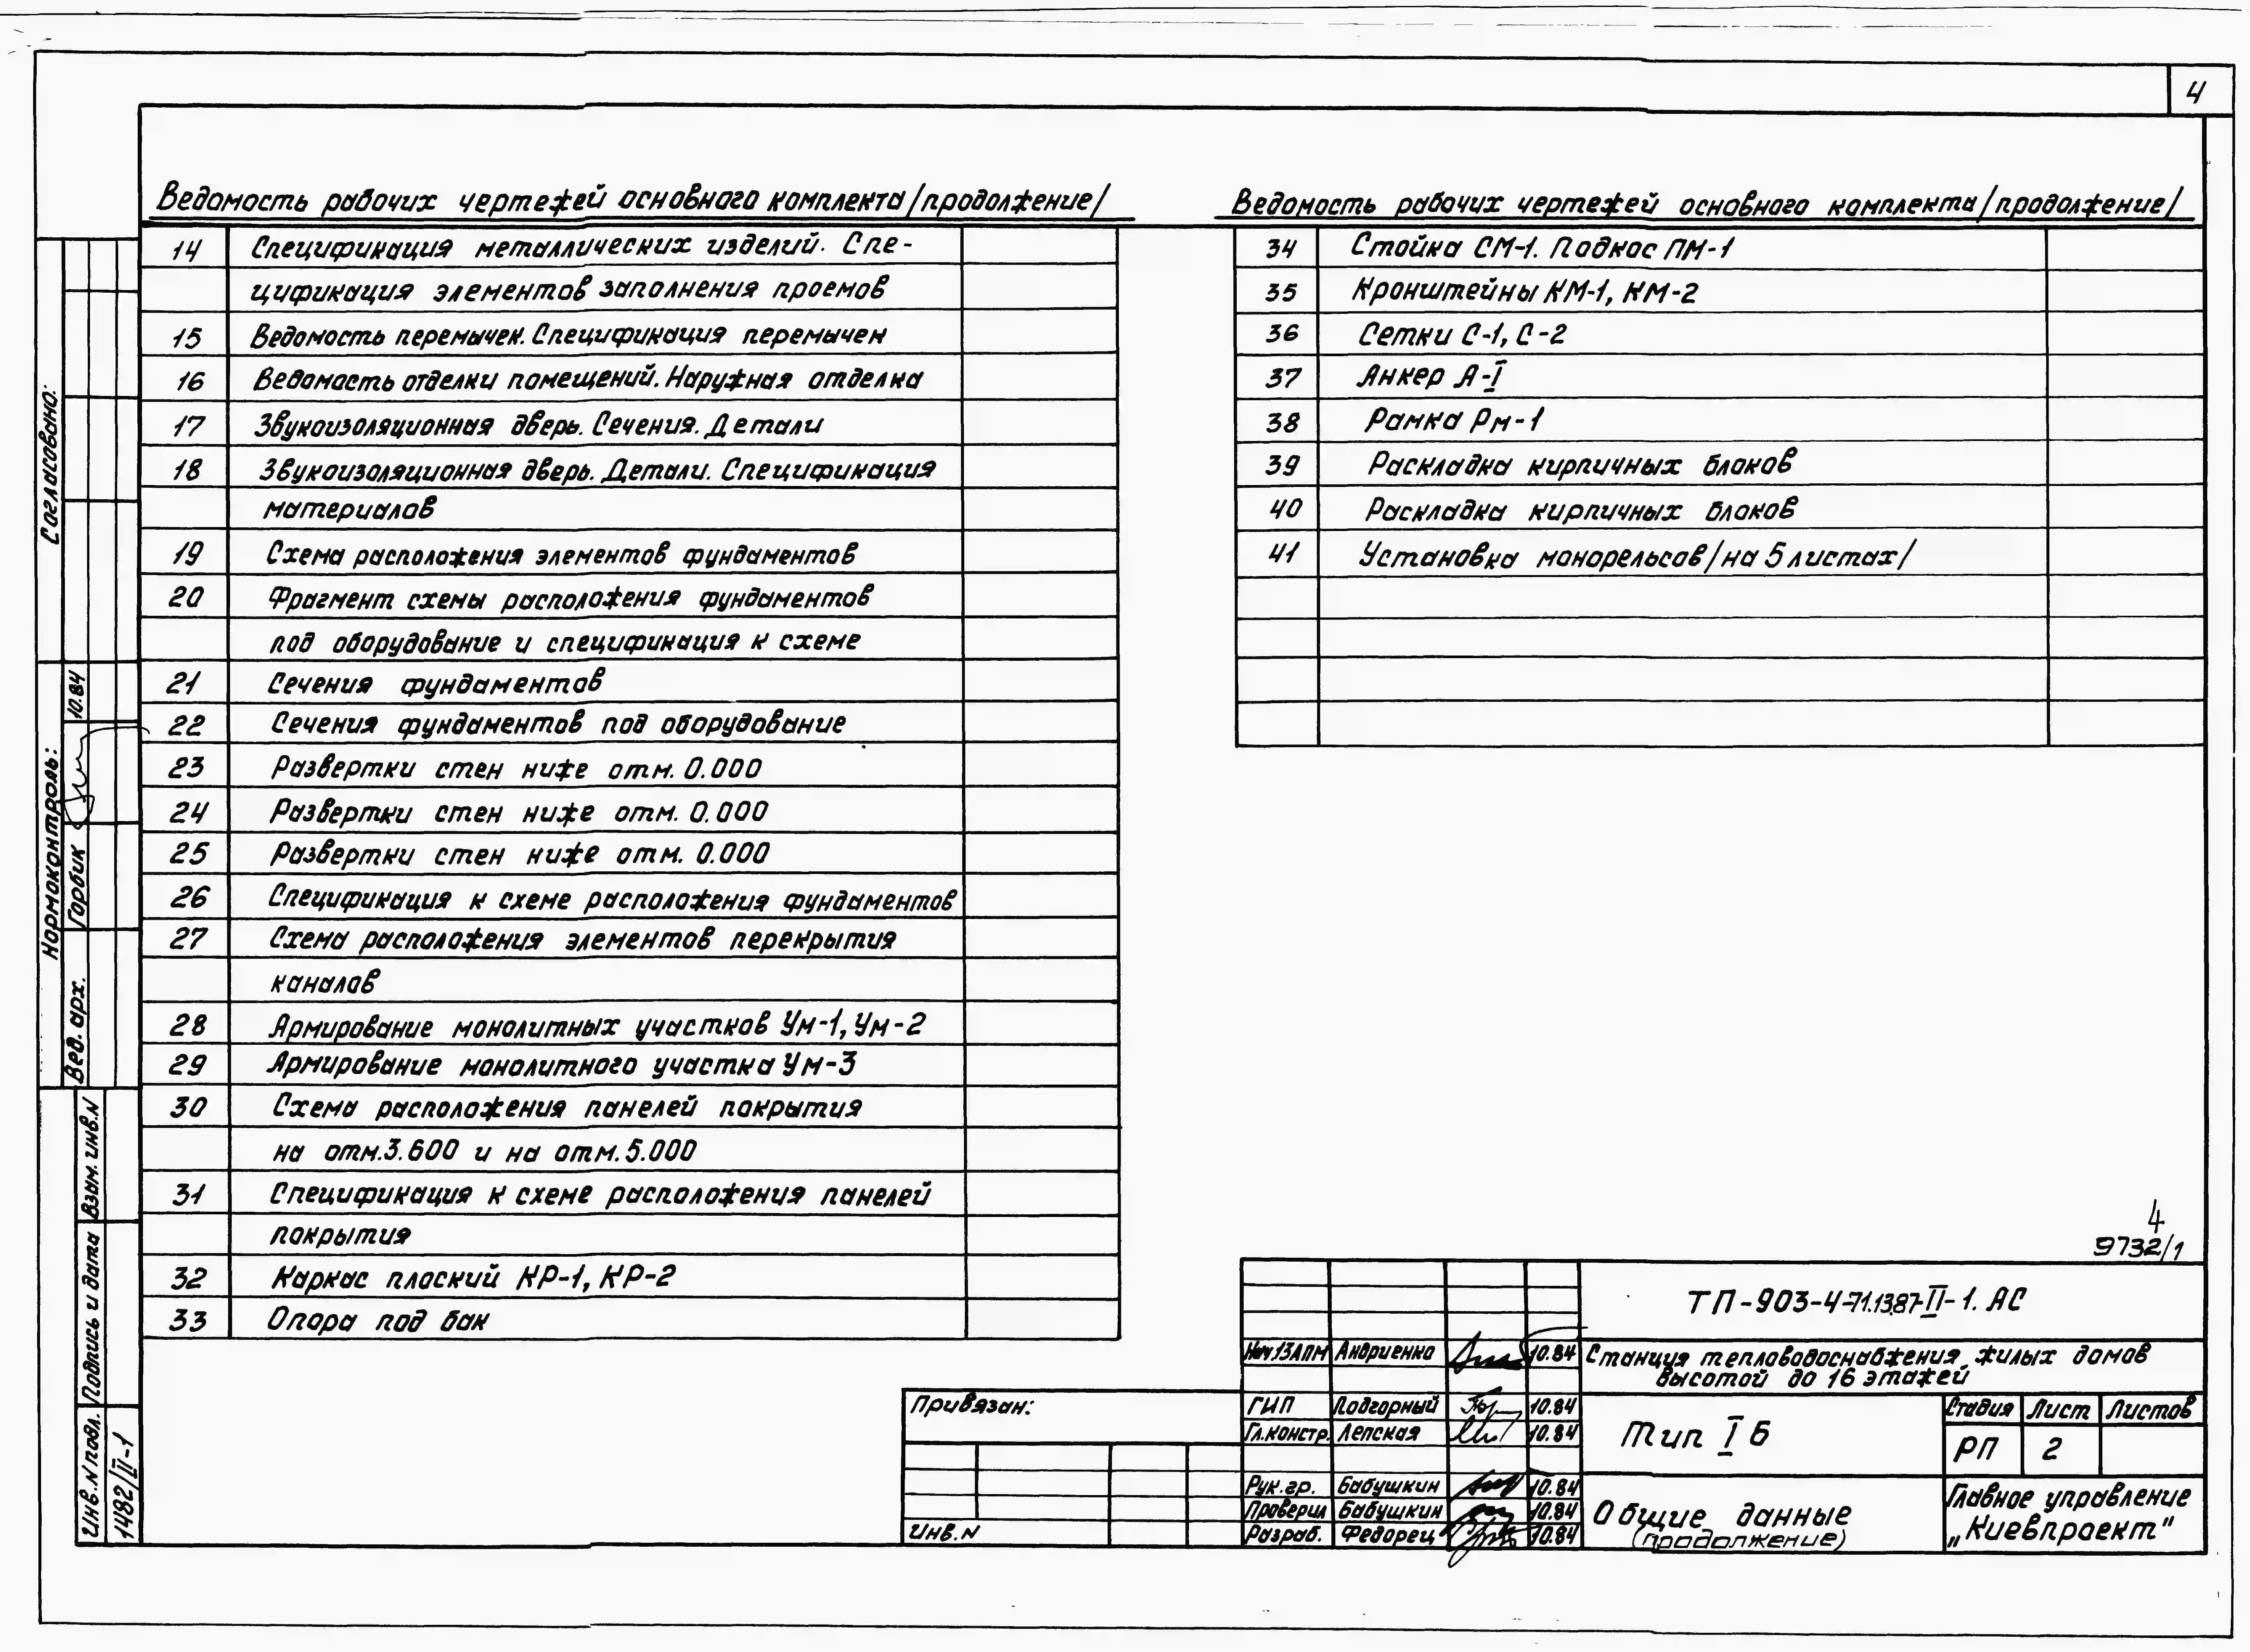 4
Ведомость рабочих чертежей основного комплекта/продолжение/
14 Спецификация металлических изделий. Спе-
цификация элементов заполнения проемов
15 Ведомость перемычек. Спецификация перемычек
16 Ведомость отделки помещений. Наружная отделка
17 Звукоизоляционная дверь. Сечения. Детали
18 Звукоизоляционная дверь. Детали. Спецификация
материалов
19 Схема расположения элементов фундаментов
20 Фрагмент схемы расположения фундаментов
под оборудование и спецификация к схеме
21 Сечения фундаментов
22 Сечения фундаментов под оборудование
23 Развертки стен ниже отм. 0.000
24 Развертки стен ниже отм. 0.000
25 Развертки стен ниже отм. 0.000
26 Спецификация к схеме расположения фундаментов
27 Схема расположения элементов перекрытия
каналов
28 Армирование монолитных участков Ум-1, Ум-2
29 Армирование монолитного участка Ум-3
30 Схема расположения панелей покрытия
на отм.3.600 и на отм.5.000
31 Спецификация к схеме расположения панелей
покрытия
32 Каркас плоский КР-1, КР-2
33 Опора под бак
Ведомость рабочих чертежей основного комплекта/продолжение/
34 Стойка СМ-1. Подкос ПМ-1
35 Кронштейны КМ-1, КМ-2
36 Сетки С-1, С-2
37 Анкер А-I
38 Рамка Рм-1
39 Раскладка кирпичных блоков
40 Раскладка кирпичных блоков
41 Установка монорельсов/на 5 листах/
Согласовано:
Нормоконтроль:
Вед. арх. Горбик 10.84
Взам. инв.N
Подпись и дата
Инв.N подл. 1482/II-1
4
9732/1
ТП-903-4-71.13.87-II-1. АС
Нач.13АПМ Андриенко 10.84
Станция тепловодоснабжения жилых домов
высотой до 16 этажей
Привязан:
ГИП Подгорный 10.84
Гл.констр. Лепская 10.84
Тип I Б
Стадия Лист Листов
РП 2
Рук.гр. Бабушкин 10.84
Проверил Бабушкин 10.84
Разраб. Федорец 10.84
Инв.N
Общие данные
(продолжение)
Главное управление
„Киевпроект"